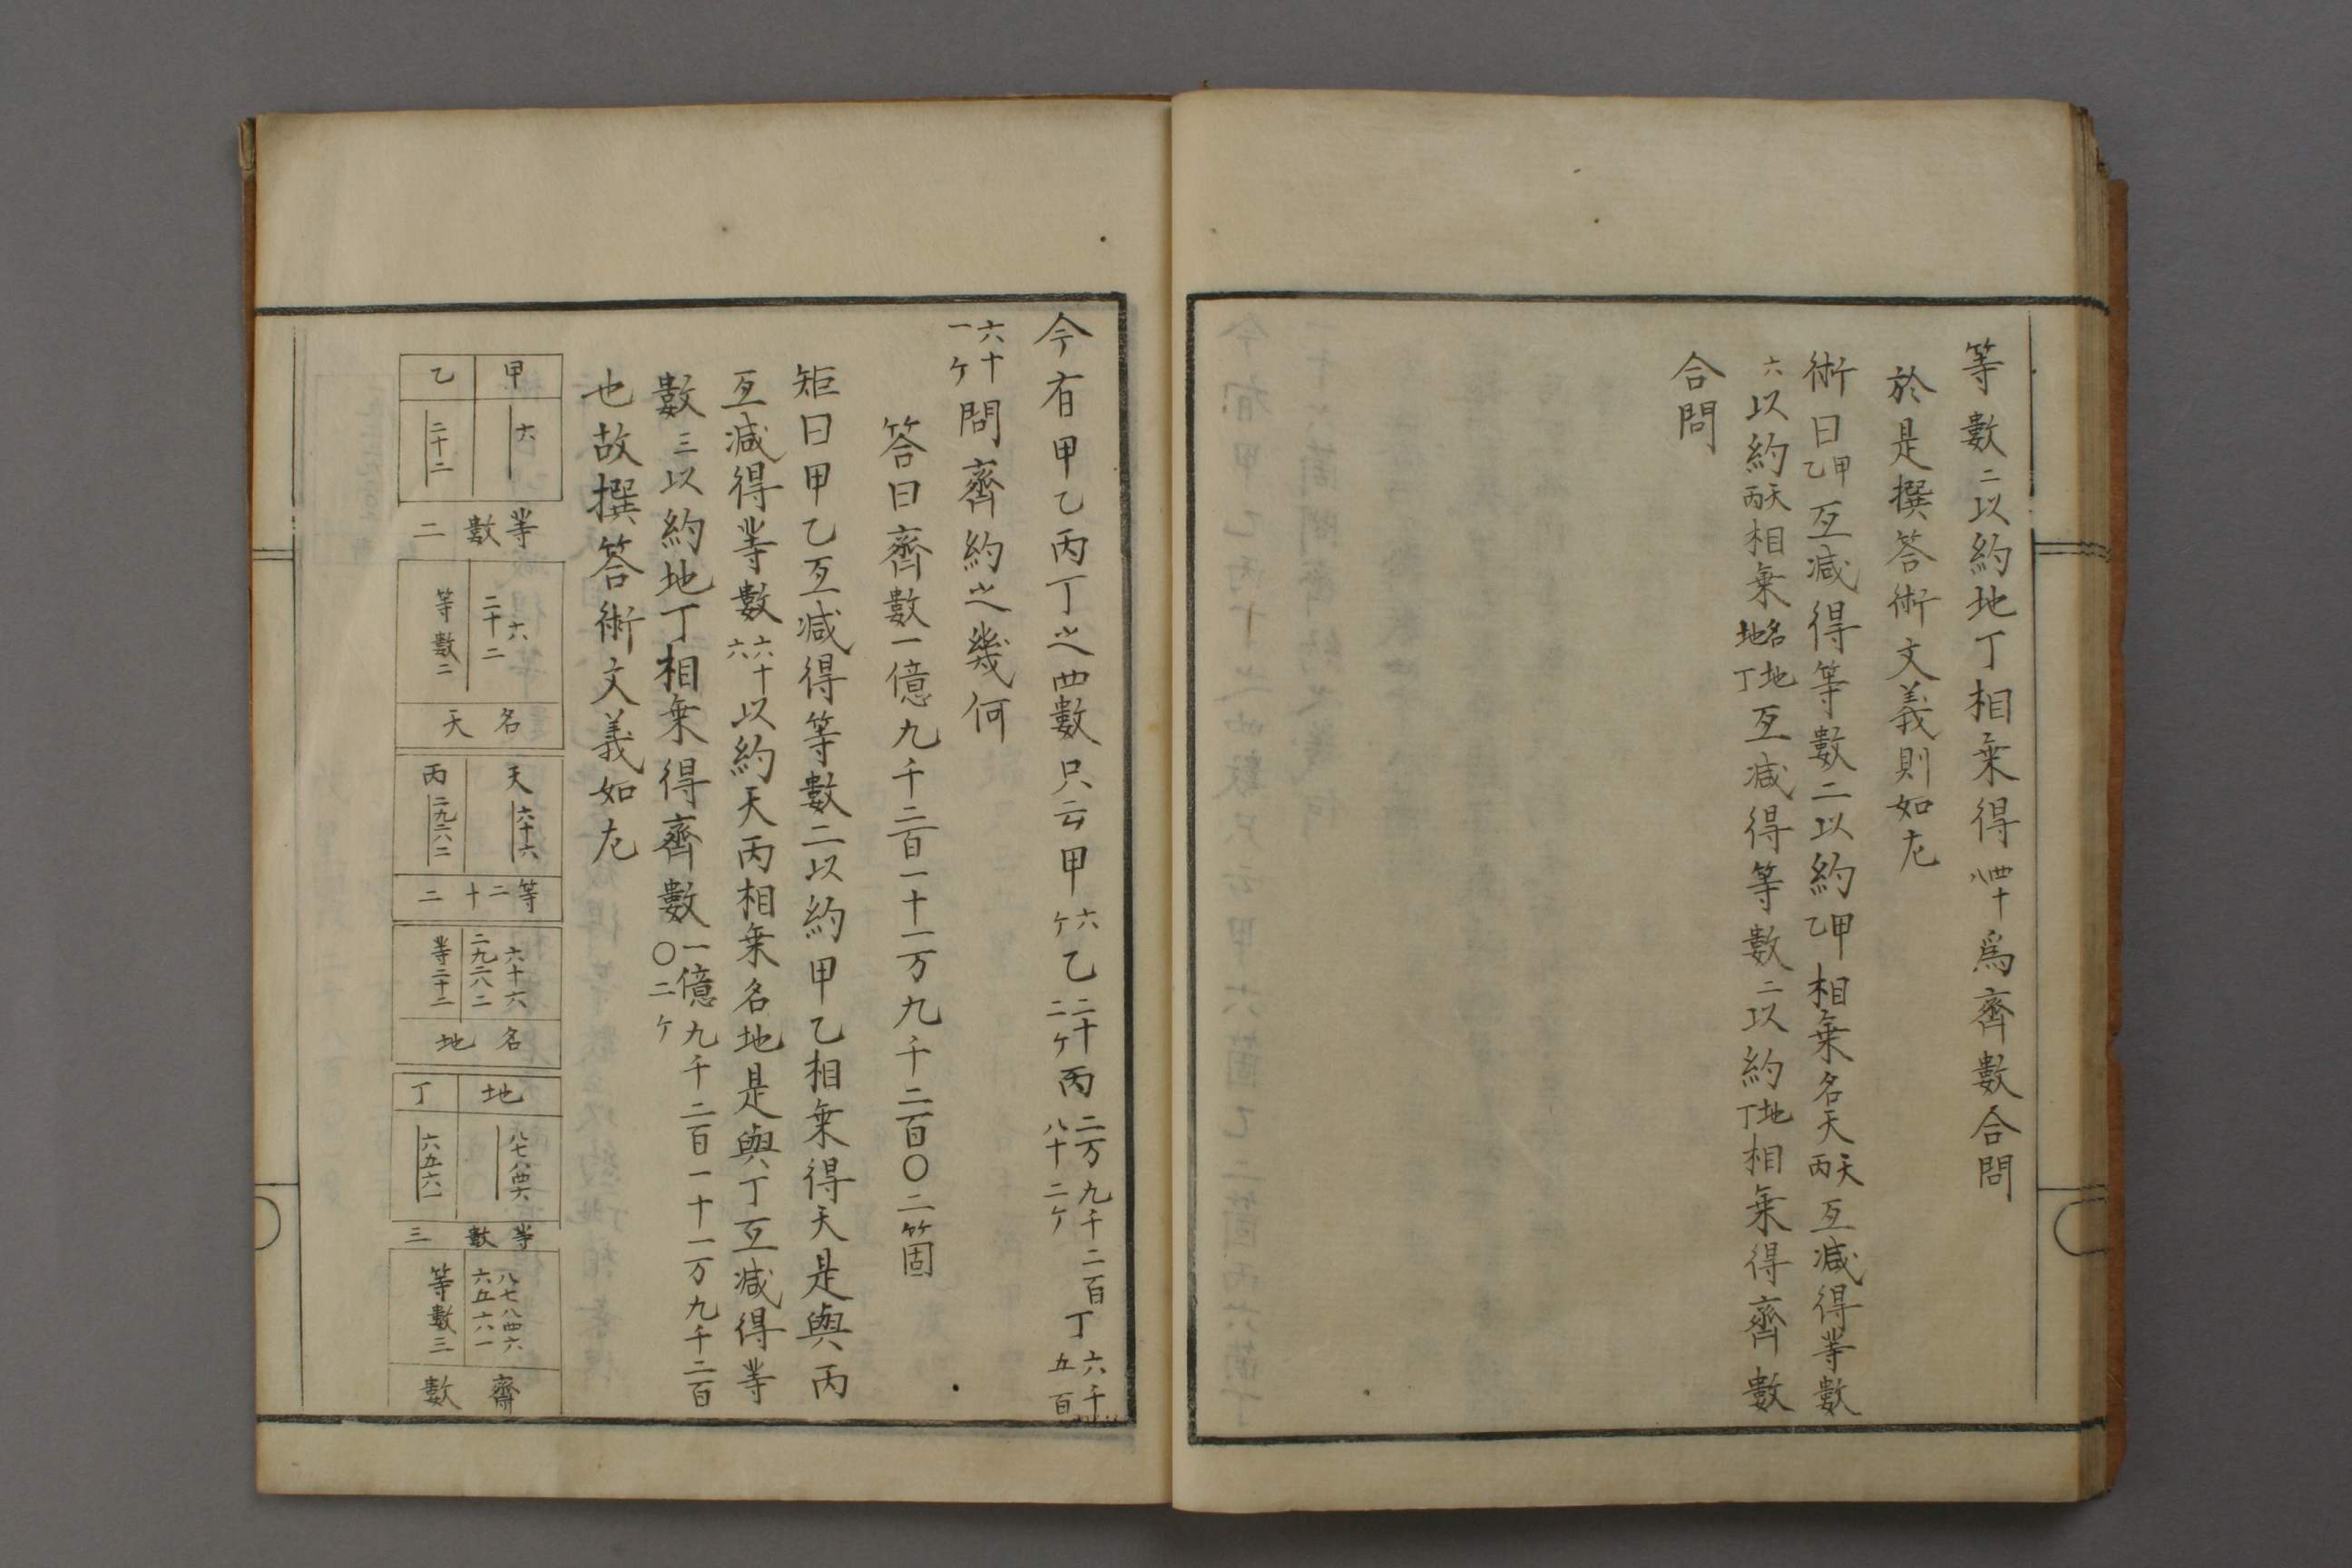 等數二以約地丁相乗得四十八爲齊數合問
於是撰答術文義則如左
術曰甲乙互减得等數二以約甲乙相乗名天天丙互减得等數
六以約天丙相乗名地地丁互减得等數二以約地丁相乗得齊數
合問
今有甲乙丙丁之四數只云甲六ケ乙二十二ケ丙二万九千二百八十二ケ丁六千五百
六十一ケ問齊約之幾何
答曰齊數一億九千二百一十一万九千二百〇二箇
矩曰甲乙互减得等數二以約甲乙相乗得天是與丙
互减得等數六十六以約天丙相乗名地是與丁互减得等
數三以約地丁相乗得齊數一億九千二百一十一万九千二百〇二ケ
也故撰答術文義如左
甲 六
乙 二十二
等數 二
六
二十二
等數二
名天
天 六十六
丙 二九二八二
等二十二
六十六
二九二八二
等二十二
名地
地 八七八四六
丁 六五六一
等數 三
八七八四六
六五六一
等數三
齊數